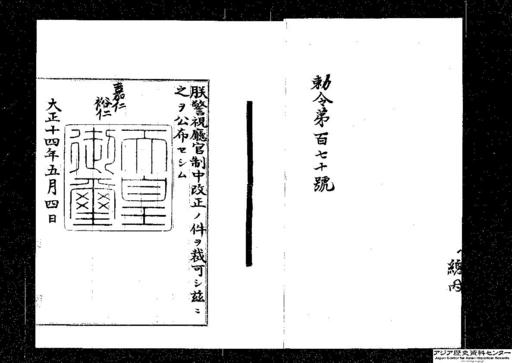 勅令第百七十號
朕警視廳官制中改正ノ件ヲ裁可シ茲ニ
之ヲ公布セシム
嘉仁
裕仁
天皇
御璽
大正十四年五月四日
アジア歴史資料センター
Japan Center for Asian Historical Records